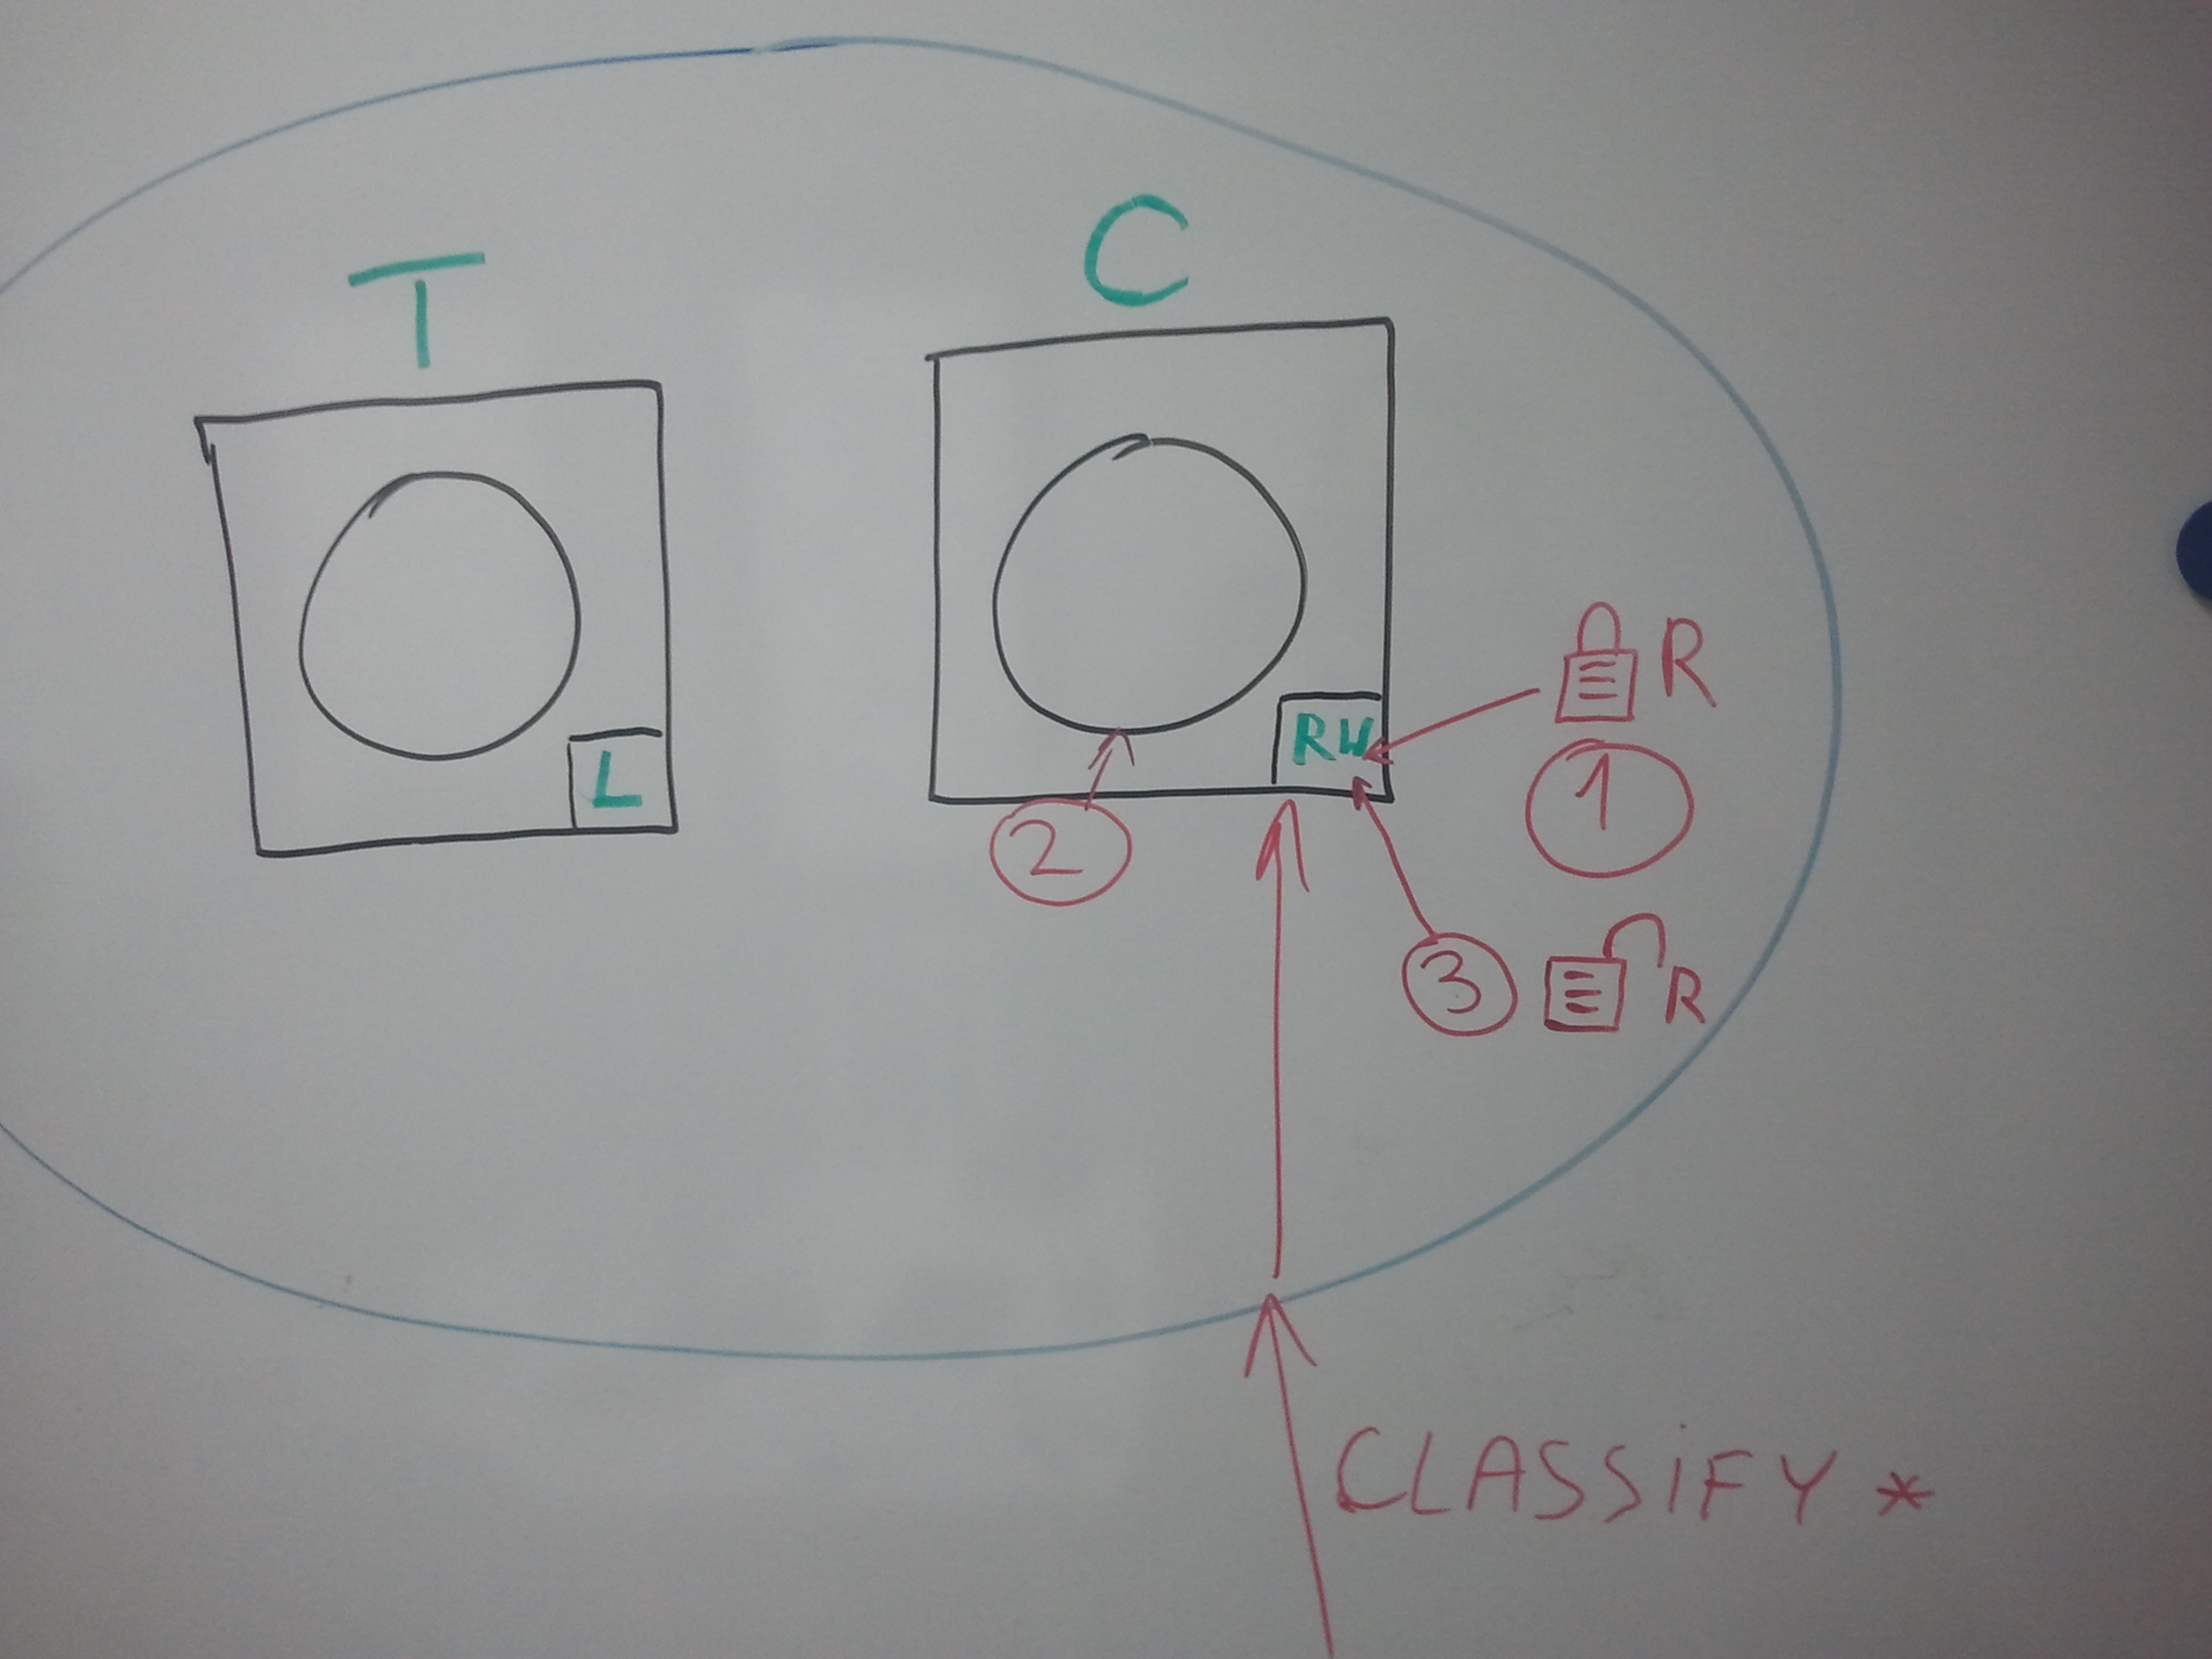 T
C
L
RW
R
1
2
3
R
CLASSiFY *